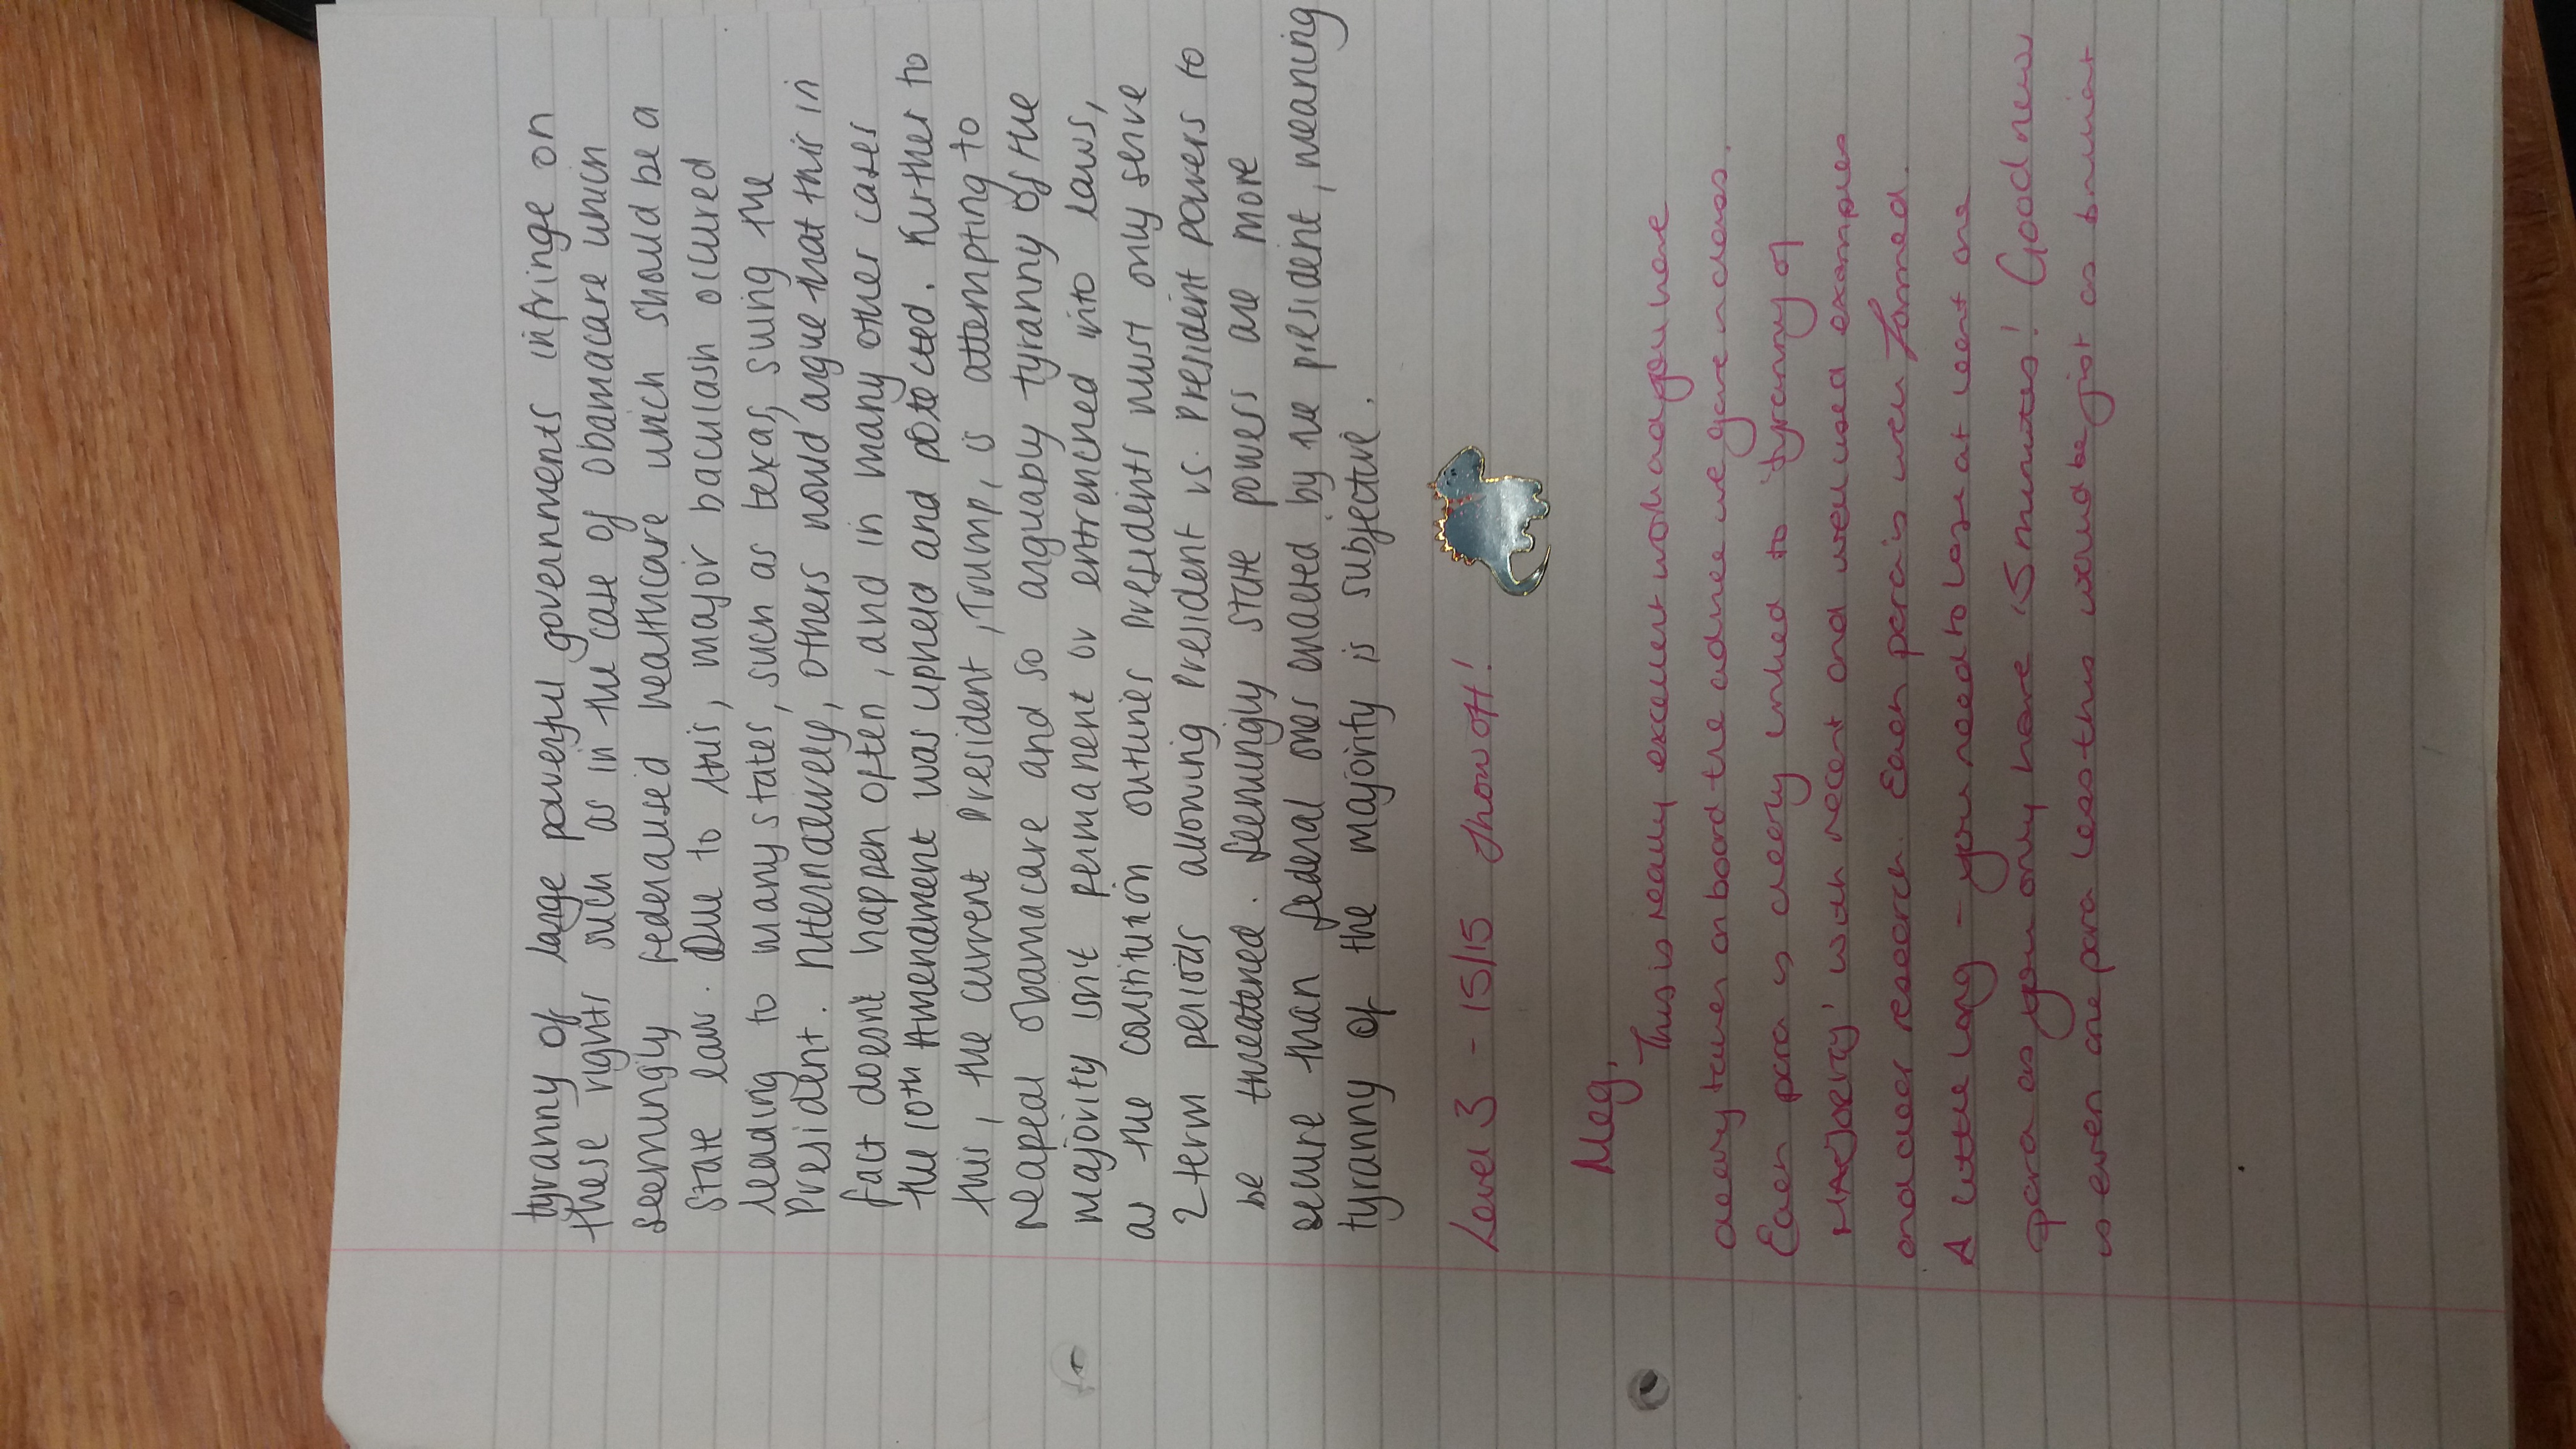 tyranny of large powerful governments infringe on
these rights such as in the case of obamacare which
seemingly federalised healthcare which should be a
state law. Due to this, major baculash occured
leading to many states, such as texas, suing the
President. Alternatively, others would argue that this in
fact doesnt happen often, and in many other cases
the 10th Amendment was upheld and protected. Further to
this, the current President, Trump, is attempting to
reapeal obamacare and so arguably tyranny of the
majority isnt permanent or entrenched into laws,
as the constitution outlines presidents must only serve
2 term periods allowing President vs. President powers to
be threatened. Seemingly state powers are more
secure than federal ones enacted by the president, meaning
tyranny of the majority is subjective.
Level 3 - 15/15 Show off!
Meg,
This is really excellent work and you have
clearly taken on board the advice we gave in class.
Each para is clearly linked to 'tyranny of
MAJORITY' with recent and well used examples
and clear research. Each para is well formed.
A little long - you need to lose at least one
para as you only have 15 minutes! Good news
is even one para less this would be just as brilliant